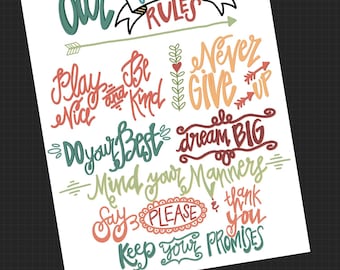 OUR
RULES
Play Nice and Be Kind
Never Give up
Do your Best
dream BIG
Mind your Manners
Say PLEASE & thank you
Keep your PROMISES